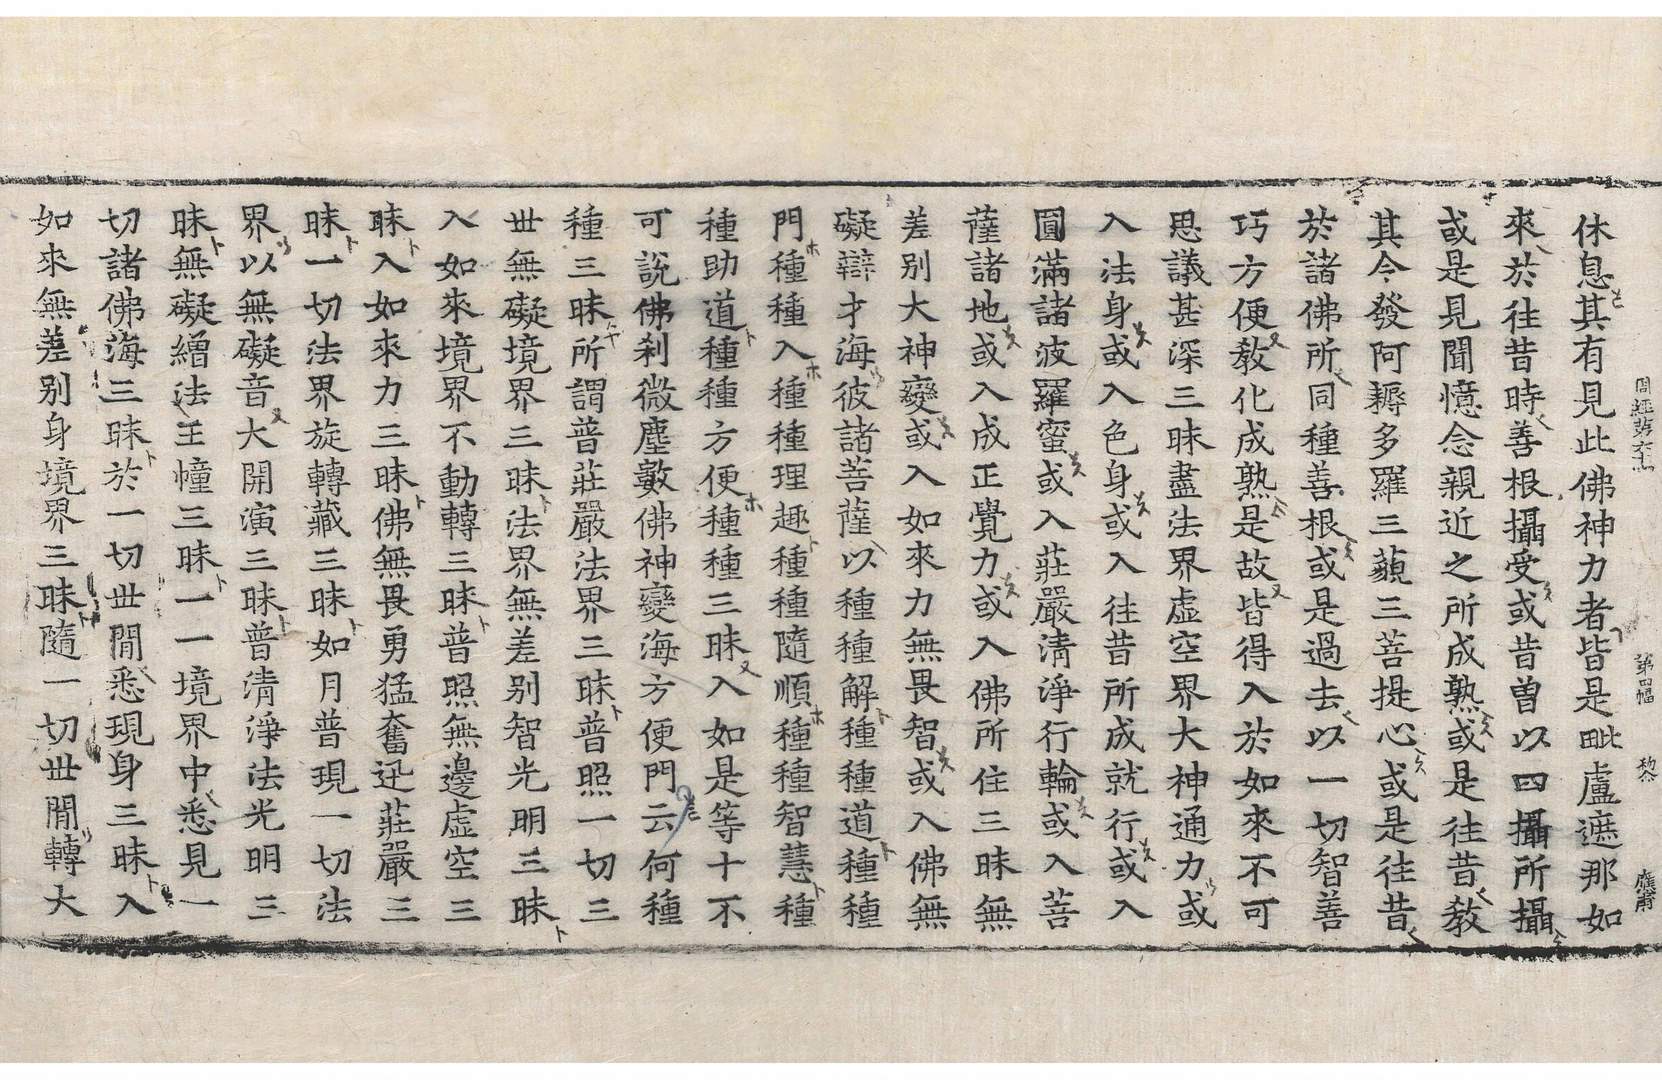 周經第六十 第四幅
休息其有見此佛神力者皆是毗盧遮那如
來於往昔時善根攝受或昔曽以四攝所攝
或是見聞憶念親近之所成熟或是往昔教
其令發阿耨多羅三藐三菩提心或是往昔
於諸佛所同種善根或是過去以一切智善
巧方便教化成熟是故皆得入於如來不可
思議甚深三昧盡法界虛空界大神通力或
入法身或入色身或入往昔所成就行或入
圓滿諸波羅蜜或入莊嚴清淨行輪或入菩
薩諸地或入成正覺力或入佛所住三昧無
差别大神變或入如來力無畏智或入佛無
礙辯才海彼諸菩薩以種種解種種道種種
門種種入種種理趣種種隨順種種智慧種
種助道種種方便種種三昧入如是等十不
可說佛刹微塵數佛神變海方便門云何種
種三昧所謂普莊嚴法界三昧普照一切三
世無礙境界三昧法界無差别智光明三昧
入如來境界不動轉三昧普照無邊虛空三
昧入如來力三昧佛無畏勇猛奮迅莊嚴三
昧一切法界旋轉藏三昧如月普現一切法
界以無礙音大開演三昧普清淨法光明三
昧無礙繒法王幢三昧一一境界中悉見一
切諸佛海三昧於一切世閒悉現身三昧入
如來無差别身境界三昧隨一切世閒轉大